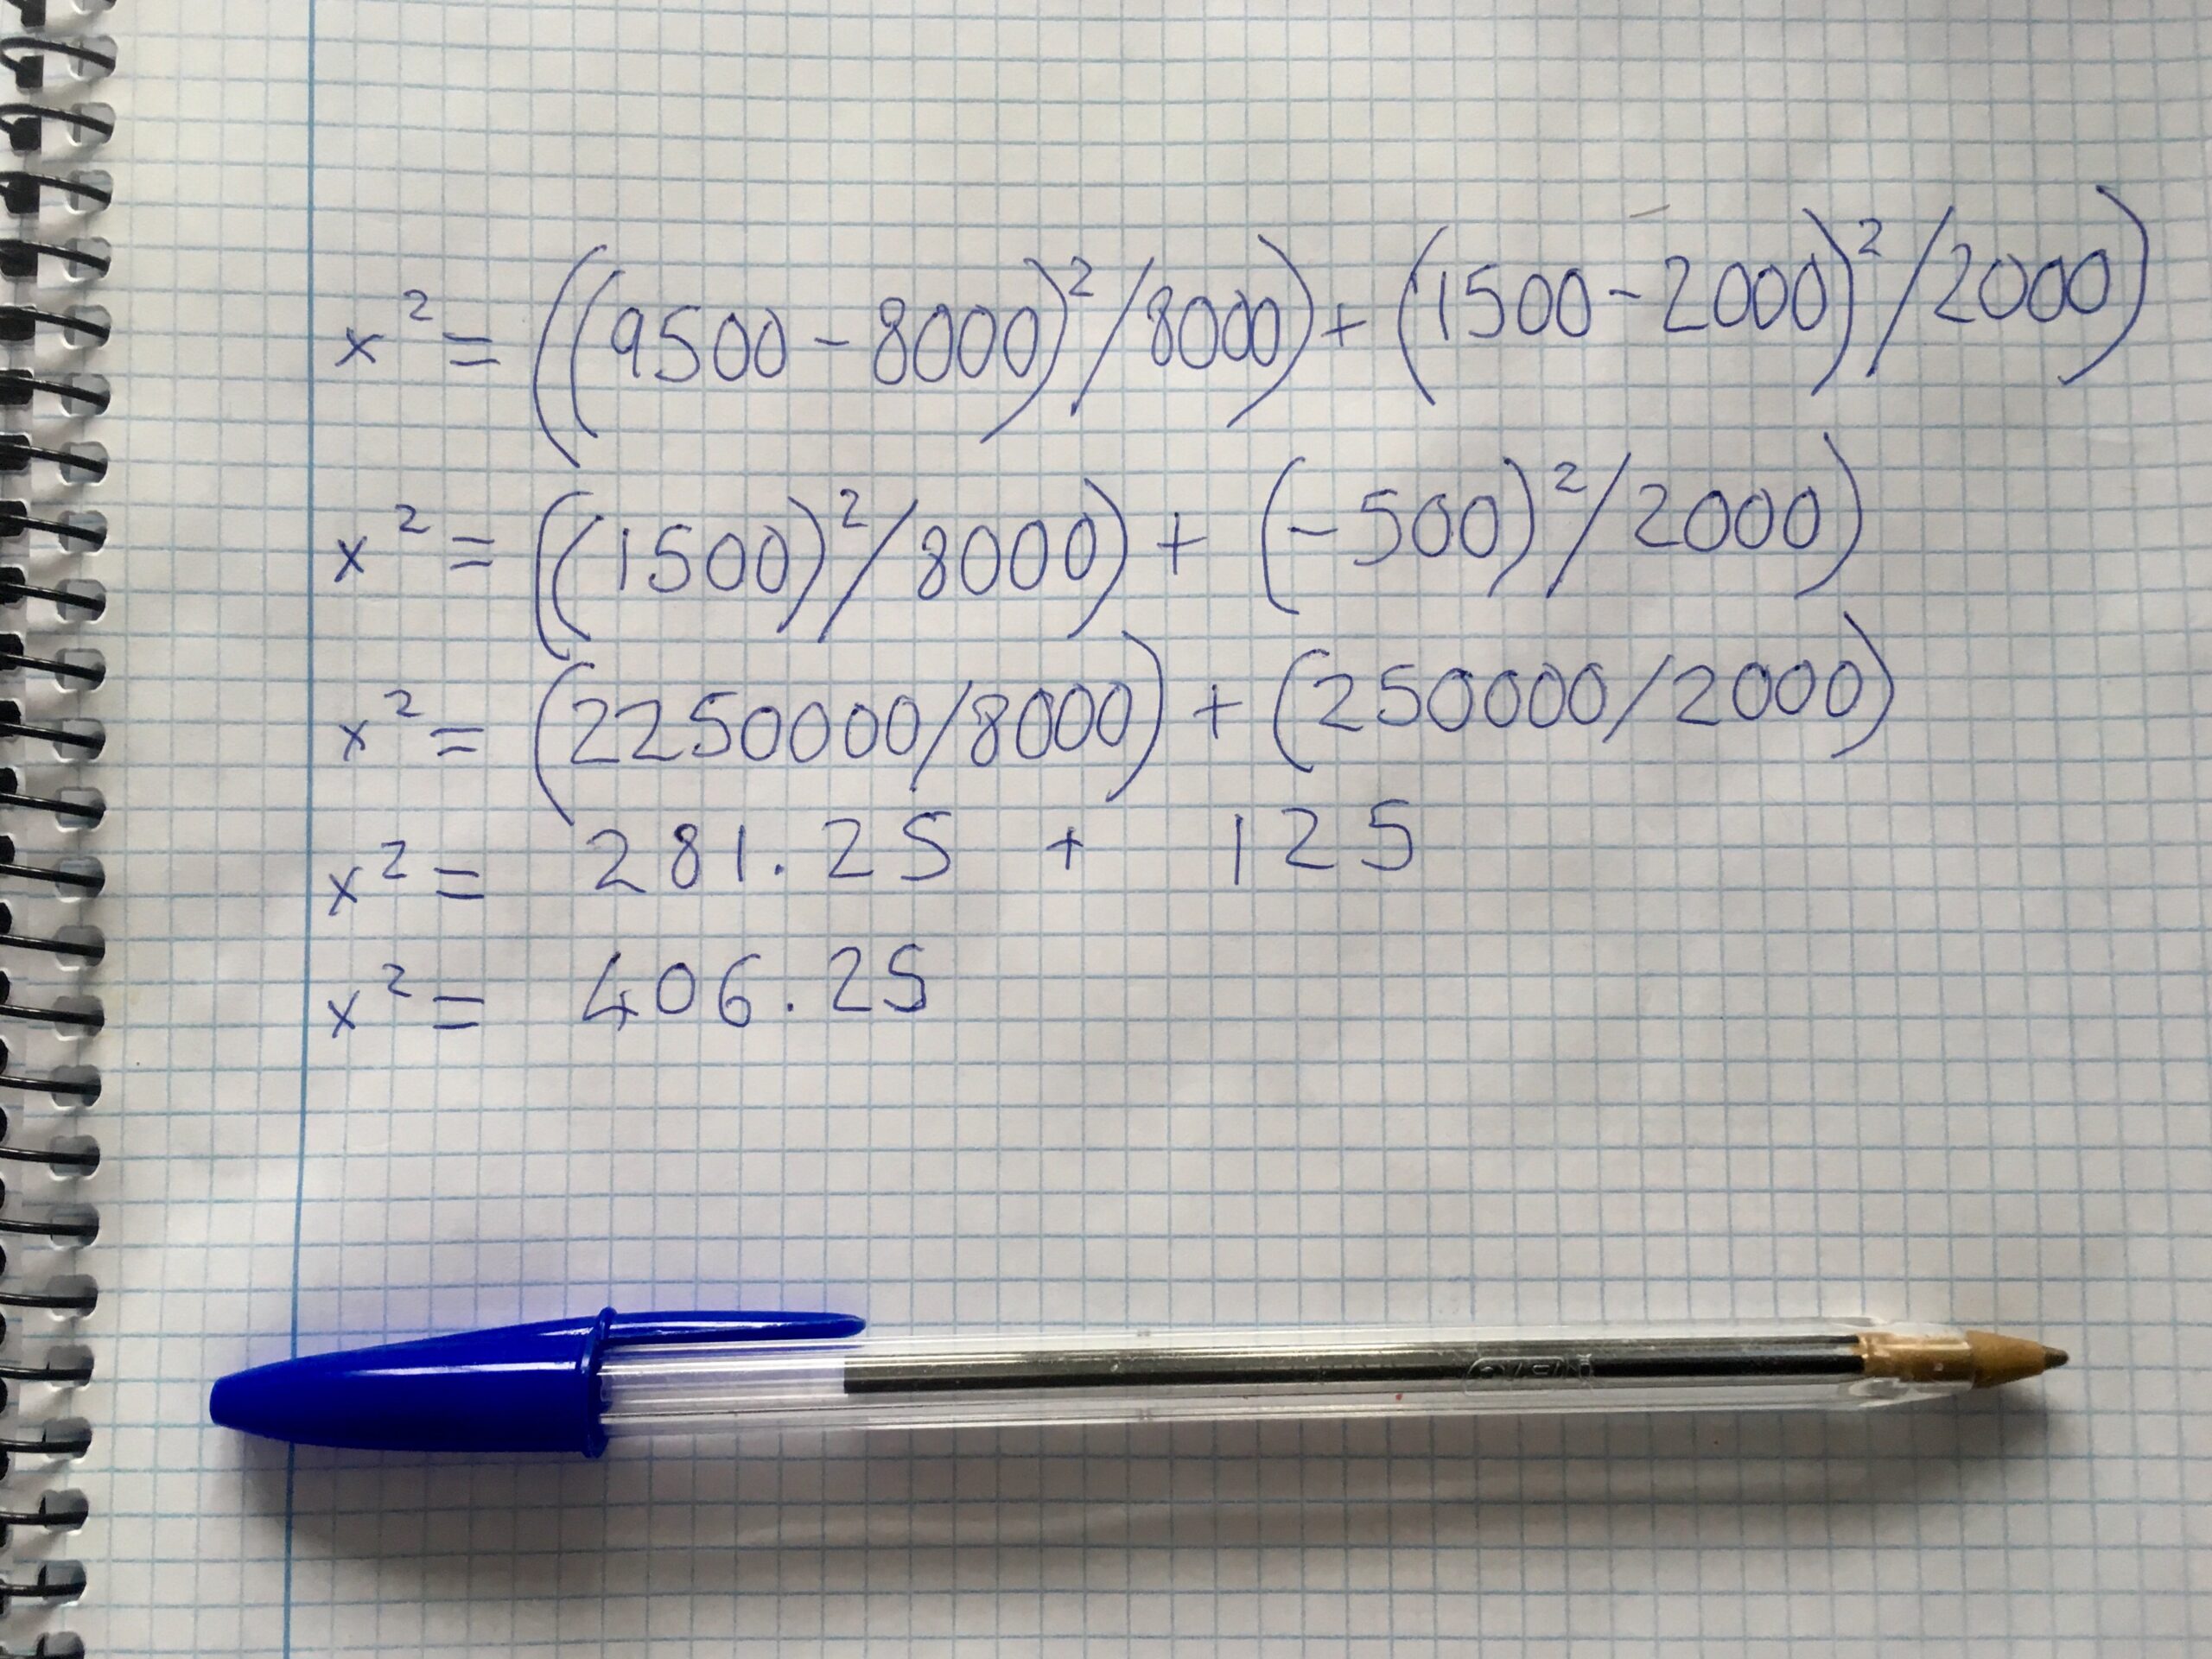 x² = ((9500-8000)²/8000)+(1500-2000)²/2000)
x² = ((1500)²/8000) + (-500)²/2000)
x² = (2250000/8000) + (250000/2000)
x² = 281.25 + 125
x² = 406.25